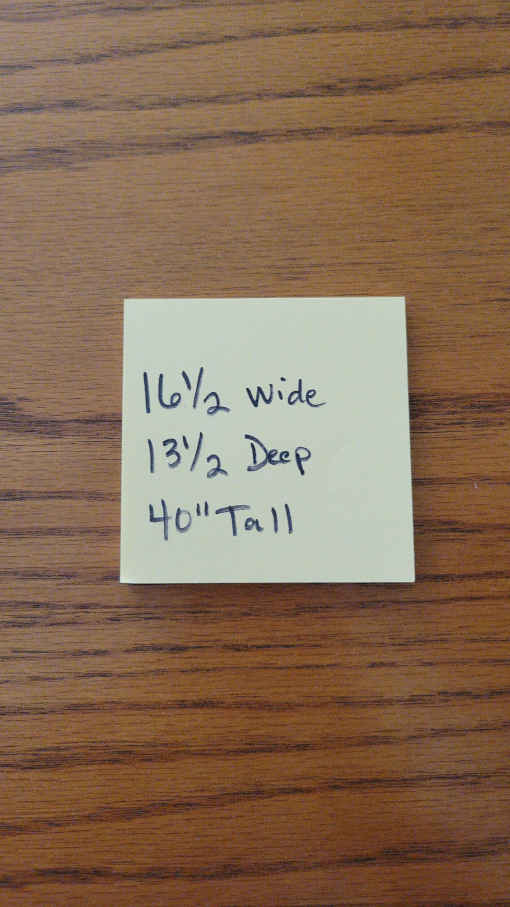 16½ Wide
13½ Deep
40" Tall